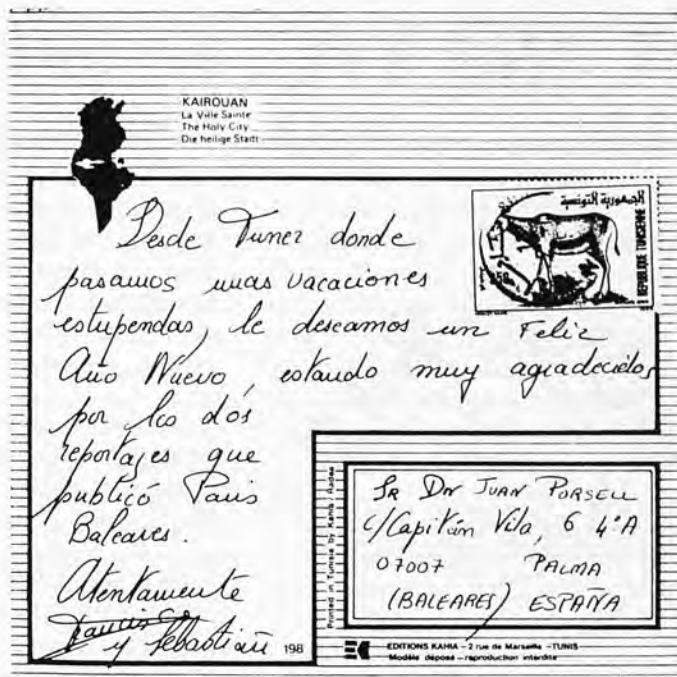 KAIROUAN
La Ville Sainte
The Holy City
Die heilige Stadt
الجمهورية التونسية
REPUBLIQUE TUNISIENNE
Desde Tunez donde
pasamos unas vacaciones
estupendas, le deseamos un Feliz
Año Nuevo, estando muy agradecidos
por los dos
reportajes que
publicó Paris
Baleares.
Atentamente
Francisco
y Sebastian
198
Printed in Tunisia by Kahia - Rades
SR DN JUAN PORSELL
C/Capitán Vila, 6 4ºA
07007 PALMA
(BALEARES) ESPAÑA
EDITIONS KAHIA - 2 rue de Marseille - TUNIS
Modèle déposé - reproduction interdite